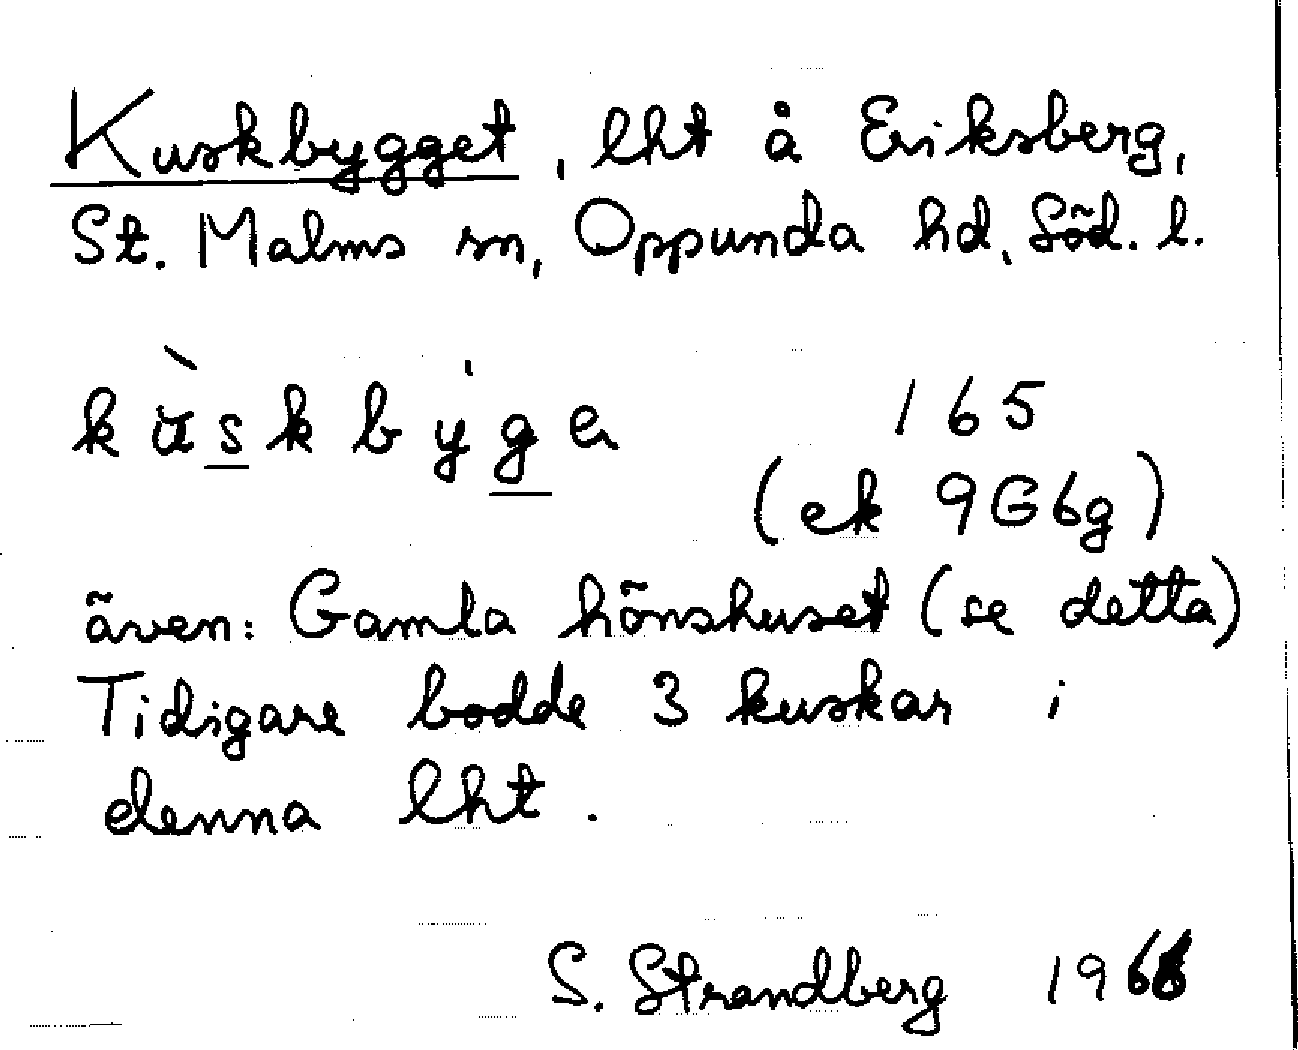 Kuskbygget, lht å Eriksberg,
St. Malms sn, Oppunda hd, Söd. l.
kùskbýge 165
(ek 9G6g)
även: Gamla hönshuset (se detta)
Tidigare bodde 3 kuskar i
denna lht.
S. Strandberg 1966